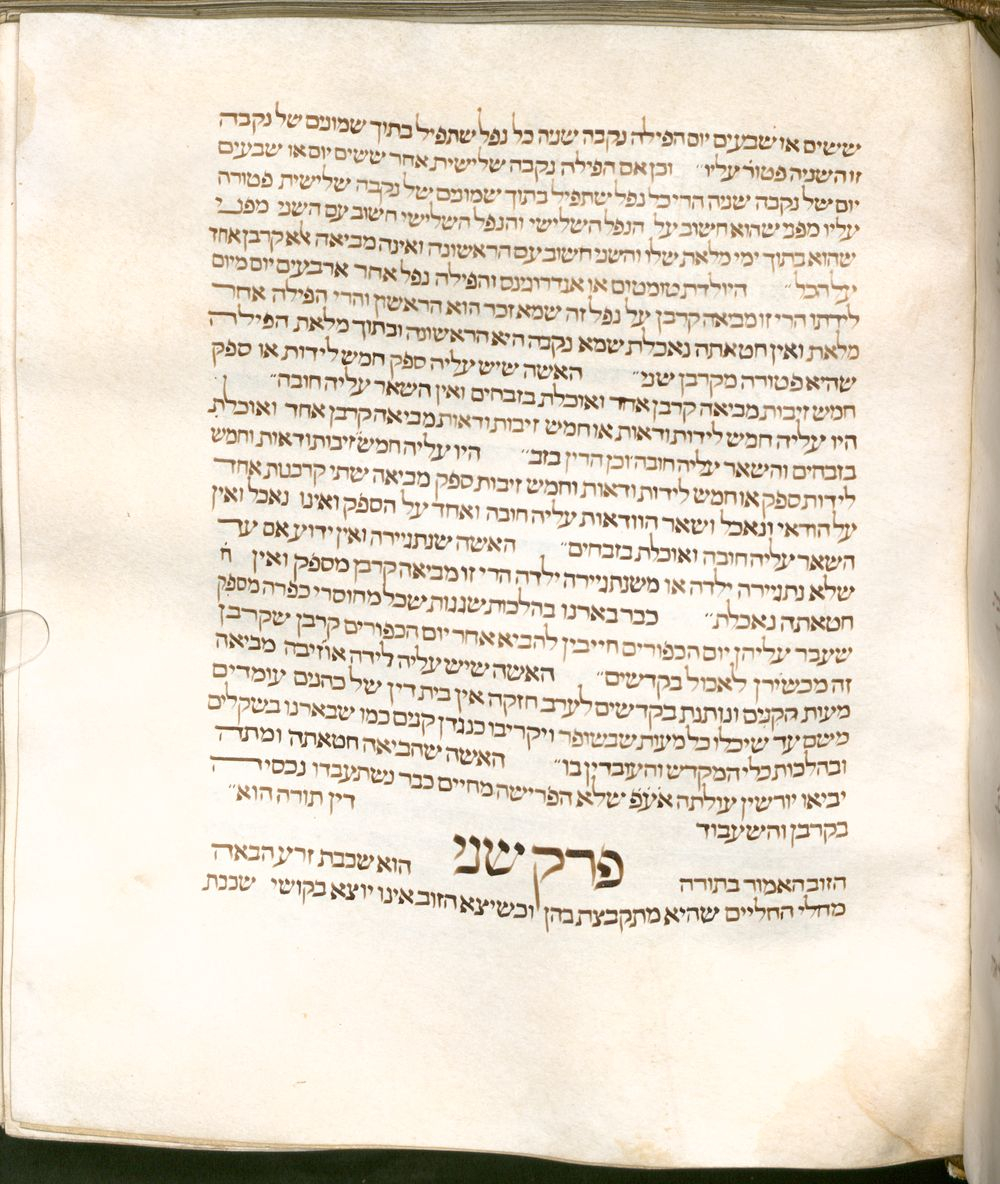 ששים או שבעים יום הפילה נקבה שניה כל נפל שתפיל בתוך שמונים של נקבה
זו השניה פטור עליו״ וכן אם הפילה נקבה שלישית אחר ששים יום או שבעים
יום של נקבה שניה הרי כל נפל שתפיל בתוך שמונים של נקבה שלישית פטורה
עליו מפני שהוא חשוב על הנפל השלישי והנפל השלישי חשוב עם השני מפני
שהוא בתוך ימי מלאת שלו והשני חשוב עם הראשונה ואינה מביאה אלא קרבן אחד
על הכל״ היולדת טומטום או אנדרוגינס והפילה נפל אחר ארבעים יום מיום
לידתו הרי זו מביאה קרבן על נפל זה שמא זכר הוא הראשון והרי הפילה אחר
מלאת ואין חטאתה נאכלת שמא נקבה היא הראשונה ובתוך מלאת הפילה
שהיא פטורה מקרבן שני״ האשה שיש עליה ספק חמש לידות או ספק
חמש זיבות מביאה קרבן אחד ואוכלת בזבחים ואין השאר עליה חובה״
היו עליה חמש לידות ודאות או חמש זיבות ודאות מביאה קרבן אחד ואוכלת
בזבחים והשאר עליה חובה וכן הדין בזב״ היו עליה חמש זיבות ודאות וחמש
לידות ספק או חמש לידות ודאות וחמש זיבות ספק מביאה שתי קרבנות אחד
על הודאי ונאכל ושאר הוודאות עליה חובה ואחד על הספק ואינו נאכל ואין
השאר עליה חובה ואוכלת בזבחים״ האשה שנתניירה ואין ידוע אם עד
שלא נתניירה ילדה או משנתניירה ילדה הרי זו מביאה קרבן מספק ואין
חטאתה נאכלת״ כבר בארנו בהלכות שגגות שכל מחוסרי כפרה מספק
שעבר עליהן יום הכפורים חייבין להביא אחר יום הכפורים קרבן שקרבן
זה מכשירן לאכול בקדשים״ האשה שיש עליה לידה או זיבה מביאה
מעות הקנים ונותנת בקדשים לערב חזקה אין בית דין של כהנים עומדים
משם עד שיכלו כל מעות שבשופר ויקריבו כנגדן קנים כמו שבארנו בשקלים
ובהלכות כלי המקדש והעובדין בו״ האשה שהביאה חטאתה ומתה
יביאו יורשין עולתה אעפ שלא הפרישה מחיים כבר נשתעבדו נכסיה
בקרבן והשעבוד דין תורה הוא״
פרק שני
הזוב האמור בתורה הוא שכבת זרע הבאה
מחלי החליים שהיא מתקבצת בהן וכשיצא הזוב אינו יוצא בקושי שכבת